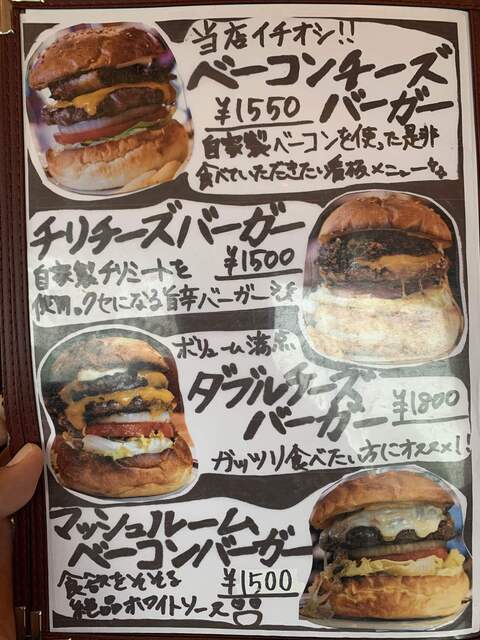 当店イチオシ!!
ベーコンチーズ
バーガー
¥1550
自家製ベーコンを使った是非
食べていただきたい看板メニューです
チリチーズバーガー
¥1500
自家製チリミートを
使用。クセになる旨辛バーガーです
ボリューム満点
ダブルチーズ
バーガー
¥1800
ガッツリ食べたい方にオススメ!!
マッシュルーム
ベーコンバーガー
¥1500
食欲をそそる
絶品ホワイトソース